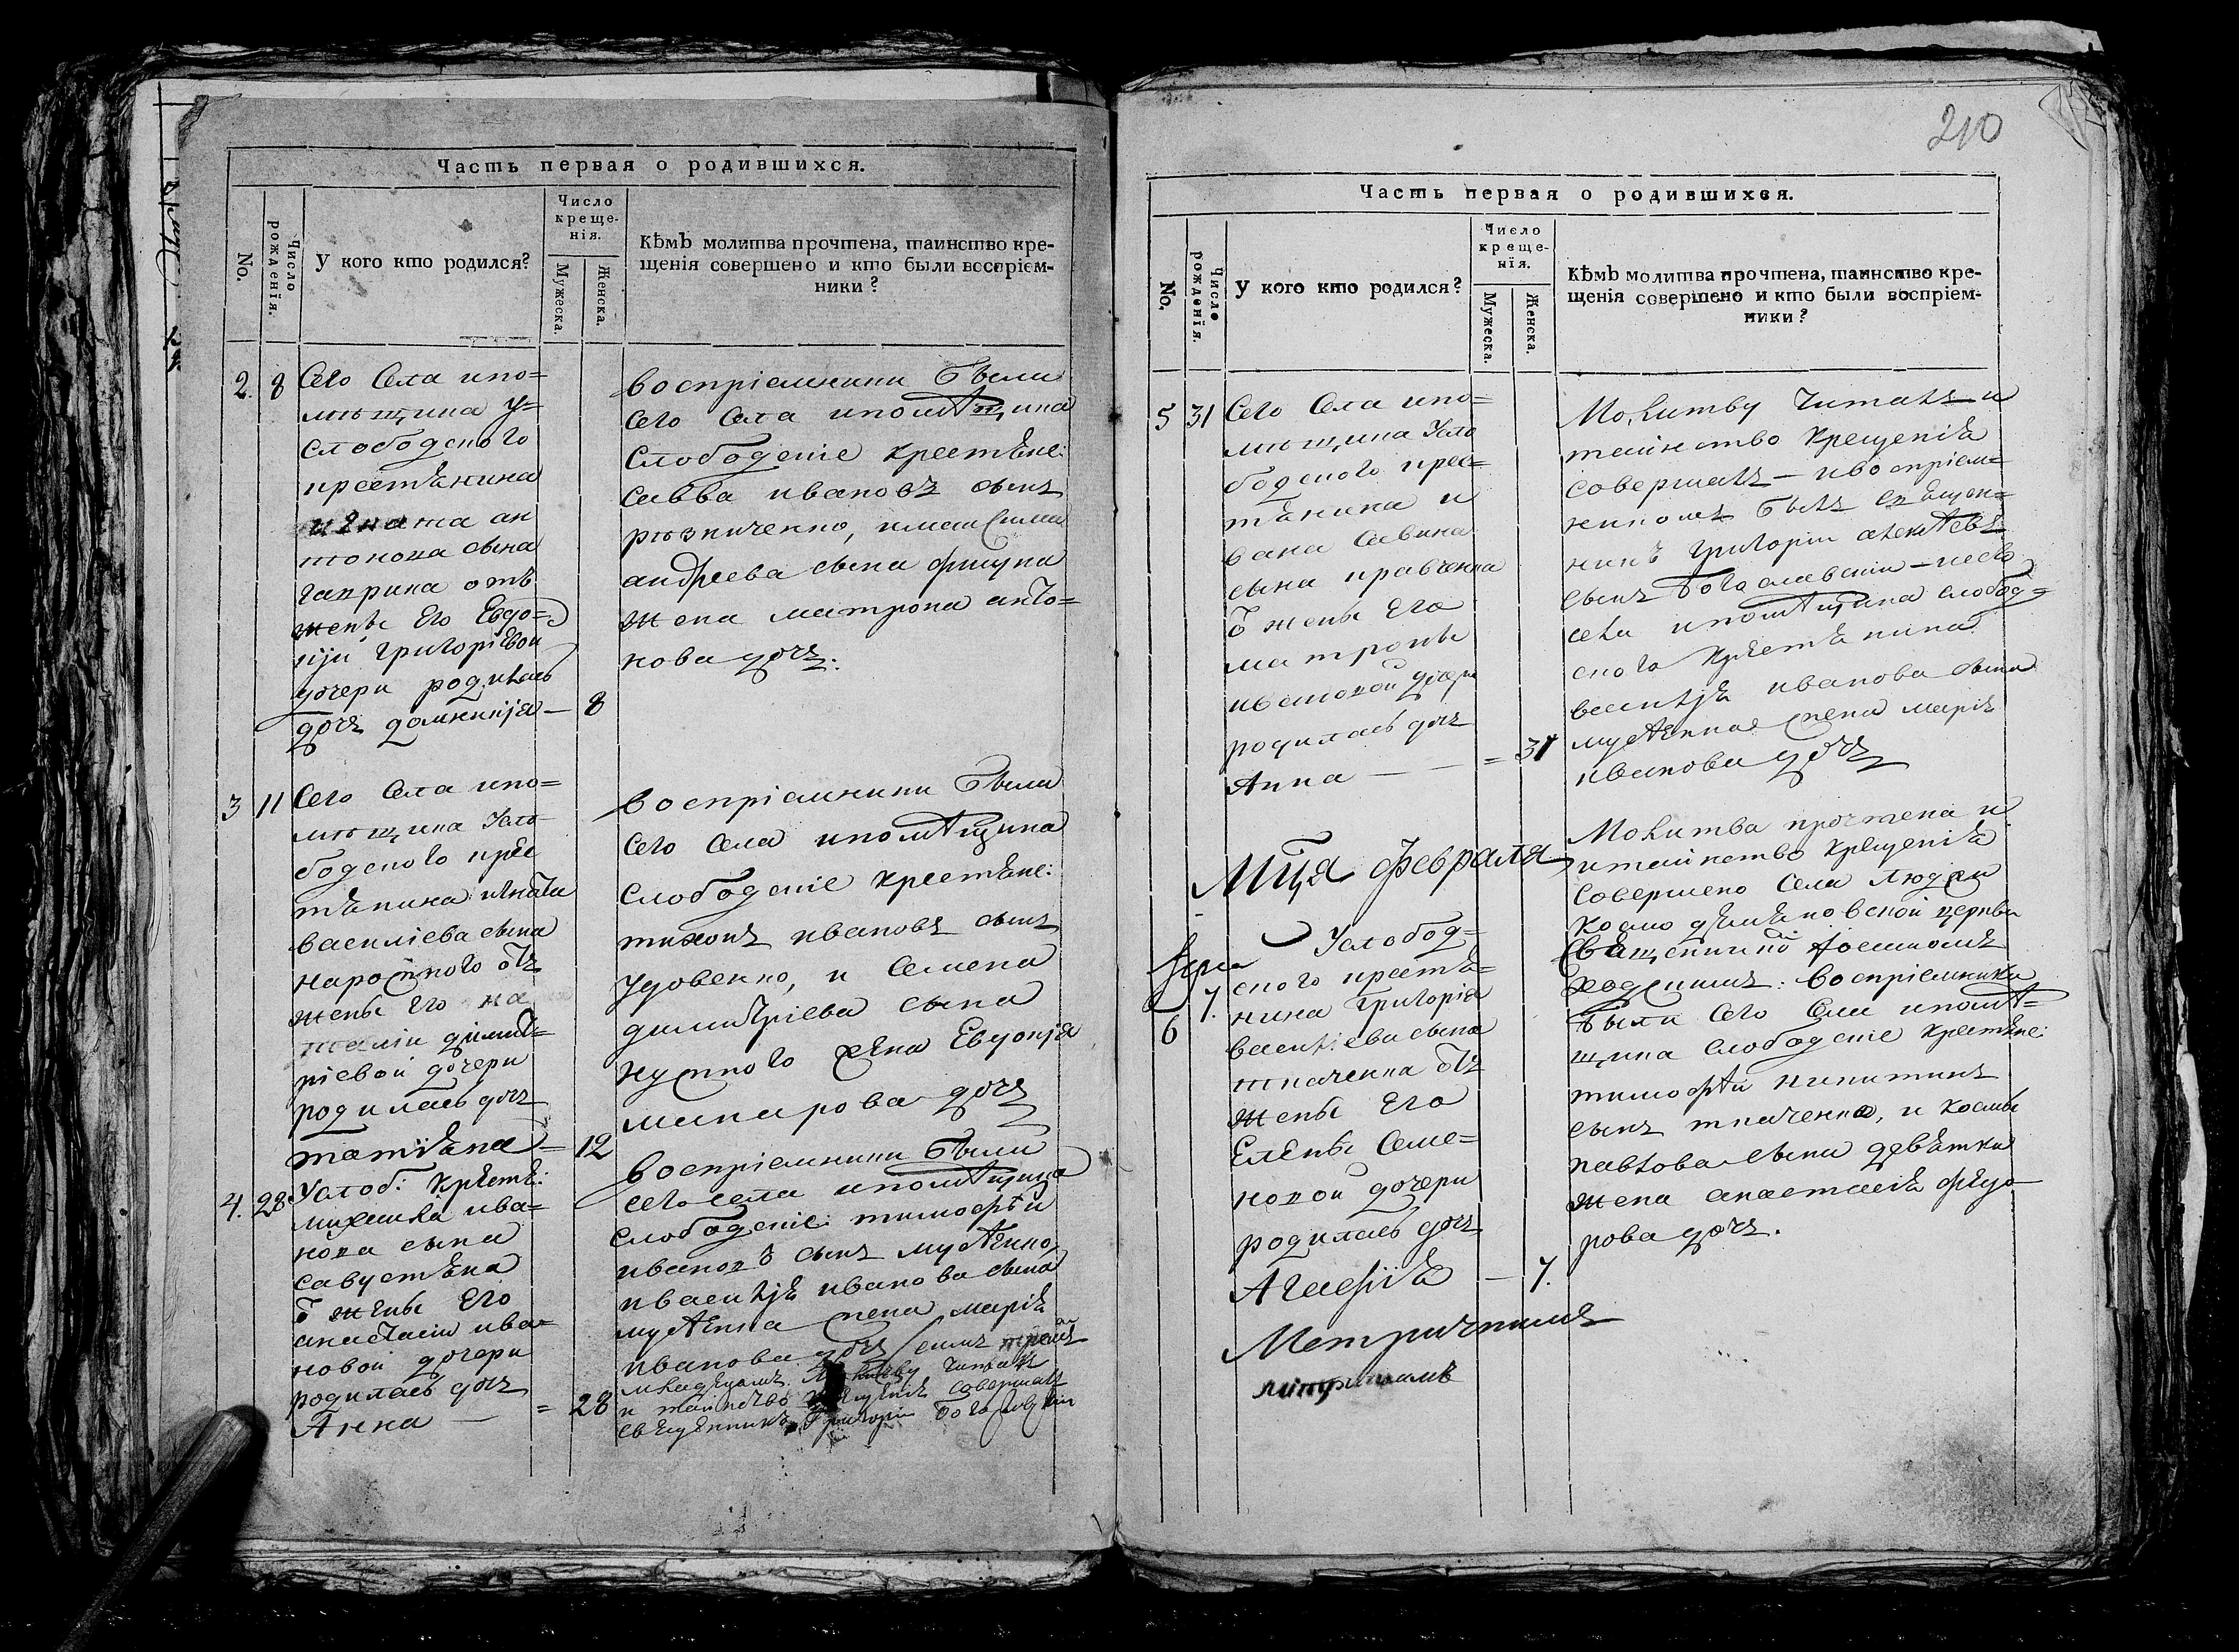 Часть первая о родившихся.
No.
Число рожденія.
У кого кто родился?
Число
креще-
нія.
Мужеска.
Женска.
Кѣмъ молитва прочтена, таинство кре-
щенія совершено и кто были воспріем-
ники?
2. 8
Сего Села ипо=
мѣщика У=
слободского
крестѧнина
игната ан
тонова сына
гаврика отъ
жены Его Евдо=
кіи григоріевой
дочери родилась
дочь домникіѧ — 8
воспріемники Были
Сего Села ипомѣщика
Слободскіе крестѧне:
Савва ивановъ сынъ
андреева сына
жена матрона анто=
нова дочь:
3 11
Сего Села ипо=
мѣщика Усло
бодского крес
тѧнина игната
василіева сына
отъ
жены Его на
таліи димит=
ріевой дочери
родилась дочь
татіѧна = 12
воспріемники Были
Сего Села ипомѣщика
Слободскіе крестѧне:
тихонъ ивановъ сынъ
удовенко, и Семена
димитріева сына
жена Евдокіѧ
макарова дочь
4. 28
Услоб: крестѧ:
михаила ива=
нова сына
савустѧна
ѿ жены Его
анастасіи ива=
новой дочери
родилась дочь
Анна — = 28
воспріемники Были
сего села ипомѣщика
слободскіе тимофѣй
ивановъ сынъ
ивасилїѧ иванова сына
жена маріѧ
иванова дочь симъ тремъ
младенцамъ Молитву читалъ
и таинство крещеніѧ совершалъ
свѧщенникъ Григорій Богославскій
210
Часть первая о родившихся.
No.
Число рожденія.
У кого кто родился?
Число
креще-
нія.
Мужеска.
Женска.
Кѣмъ молитва прочтена, таинство кре-
щенія совершено и кто были воспріем-
ники?
5 31
Сего Села ипо=
мѣщика Усло
бодского крес=
тѧнина и
вана Савина
сына кравченка
ѿ жены Его
матроны
ивановой дочери
родилась дочь
Анна — — = 31
Молитву Читалъ и
таинство крещеніѧ
совершалъ — ивоспріем=
никомъ былъ свѧщен=
никъ григорій алексѣевъ
сынъ Богославскій — исего
села ипомѣщика слобод=
ского крестѧнина
василїѧ иванова сына
жена маріѧ
иванова дочь
Мцѧ Февралѧ
6 7.
Услобод=
ского крестѧ=
нина григоріѧ
василіева сына
ткаченка отъ
жены Его
Елены Семе=
новой дочери
родилась дочь
Агафіѧ — 7.
Молитва прочтена и
итаинство крещеніѧ
совершено Села Люджи
космо демѧновской церкви
Свѧщенникомъ
воспріемники
были Сего Села ипомѣ=
щика слободскіе крестѧне:
тимофѣй никитинъ
сынъ ткаченко, и космы
павлова сына девѧтки
жена анастасіѧ федо=
рова дочь.